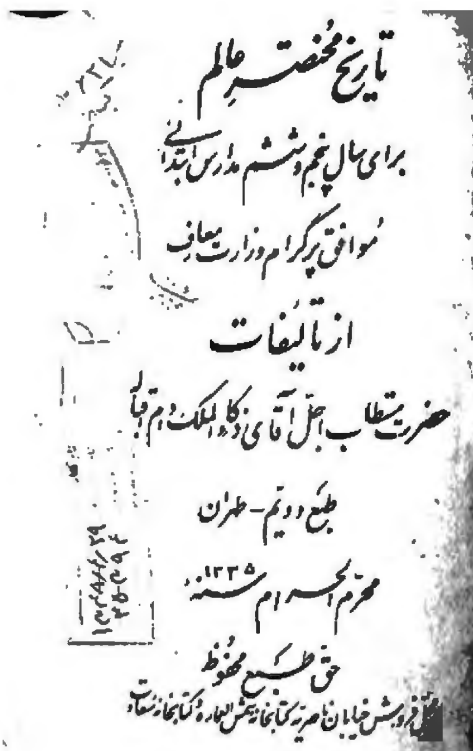 تاریخ مختصر عالم
برای سال پنجم و ششم مدارس ابتدائی
موافق پرگرام وزارت معارف
از تألیفات
حضرت مستطاب اجلّ آقای ذکاءالملک دام اقباله
طبع دویّم - طهران
محرّم الحرام سنه ۱۳۳۵
حق طبع محفوظ
محل فروش خیابان ناصریه کتابخانه شمس العماره و کتابخانه سعادت